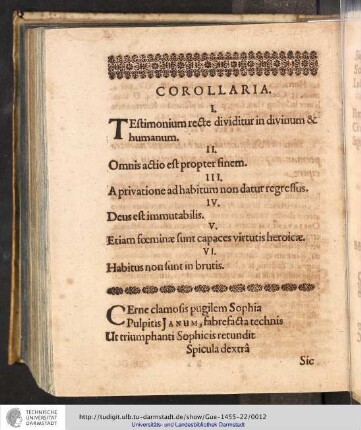 COROLLARIA.
I.
TEstimonium recte dividitur in divinum &
humanum.
II.
Omnis actio est propter finem.
III.
A privatione ad habitum non datur regressus.
IV.
Deus est immutabilis.
V.
Etiam fœminæ sunt capaces virtutis heroicæ.
VI.
Habitus non sunt in brutis.
CErne clamosis pugilem Sophia
Pulpitis JANUM, fabrefacta technis
Ut triumphanti Sophicis retundit
Spicula dextrâ
Sic
TECHNISCHE
UNIVERSITÄT
DARMSTADT
http://tudigit.ulb.tu-darmstadt.de/show/Gue-1455-22/0012
Universitäts- und Landesbibliothek Darmstadt